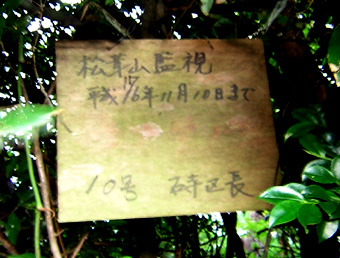 松茸山監視
平成16年11月10日まで
10号 寺区長